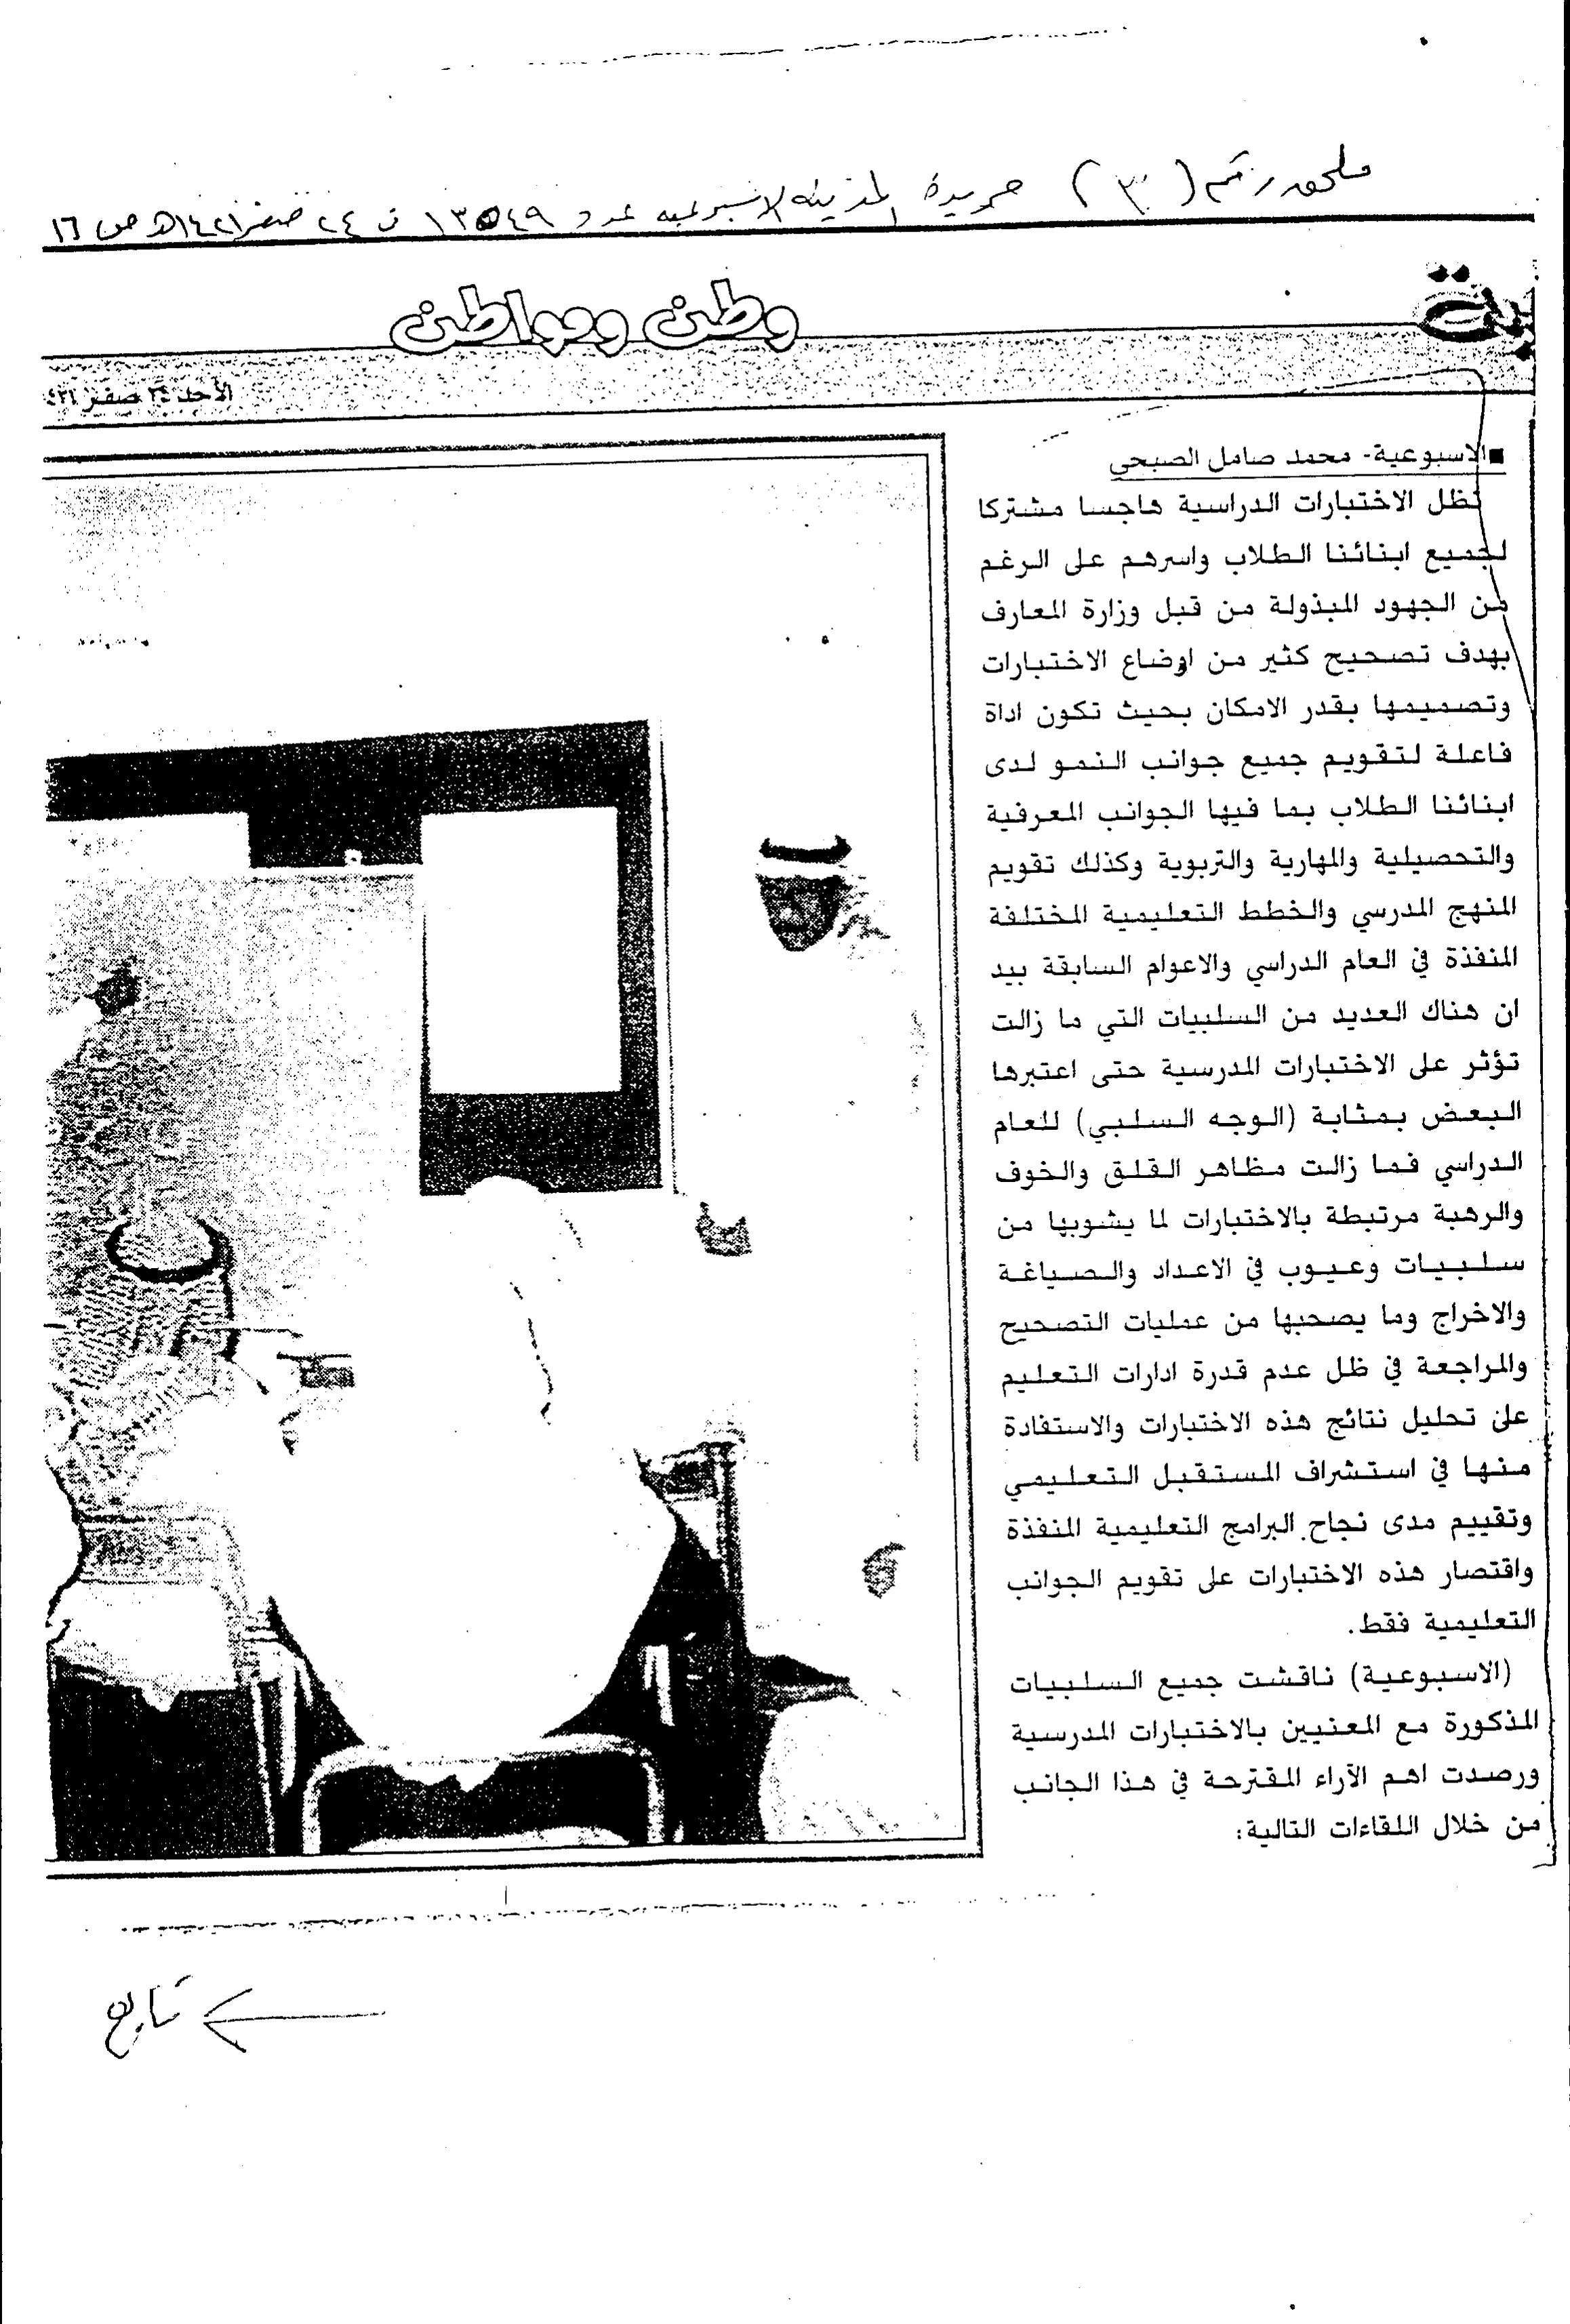 ملحق رقم (٣) جريدة المدينة الاسبوعية عدد ١٣٥٤٩ في ٢٤ صفر ١٤٢١هـ ص ١٦
وطن ومواطن
الأحد ٢٤ صفر
■الاسبوعية- محمد صامل الصبحي
تظل الاختبارات الدراسية هاجسا مشتركا
لجميع ابنائنا الطلاب واسرهم على الرغم
من الجهود المبذولة من قبل وزارة المعارف
بهدف تصحيح كثير من اوضاع الاختبارات
وتصميمها بقدر الامكان بحيث تكون اداة
فاعلة لتقويم جميع جوانب النمو لدى
ابنائنا الطلاب بما فيها الجوانب المعرفية
والتحصيلية والمهارية والتربوية وكذلك تقويم
المنهج المدرسي والخطط التعليمية المختلفة
المنفذة في العام الدراسي والاعوام السابقة بيد
ان هناك العديد من السلبيات التي ما زالت
تؤثر على الاختبارات المدرسية حتى اعتبرها
البعض بمثابة (الوجه السلبي) للعام
الدراسي فما زالت مظاهر القلق والخوف
والرهبة مرتبطة بالاختبارات لما يشوبها من
سلبيات وعيوب في الاعداد والصياغة
والاخراج وما يصحبها من عمليات التصحيح
والمراجعة في ظل عدم قدرة ادارات التعليم
على تحليل نتائج هذه الاختبارات والاستفادة
منها في استشراف المستقبل التعليمي
وتقييم مدى نجاح البرامج التعليمية المنفذة
واقتصار هذه الاختبارات على تقويم الجوانب
التعليمية فقط.
(الاسبوعية) ناقشت جميع السلبيات
المذكورة مع المعنيين بالاختبارات المدرسية
ورصدت اهم الآراء المقترحة في هذا الجانب
من خلال اللقاءات التالية:
تابع